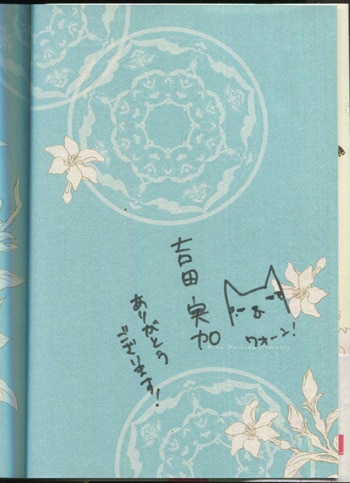 吉田実加
ありがとう
ございます!
ウォーン!